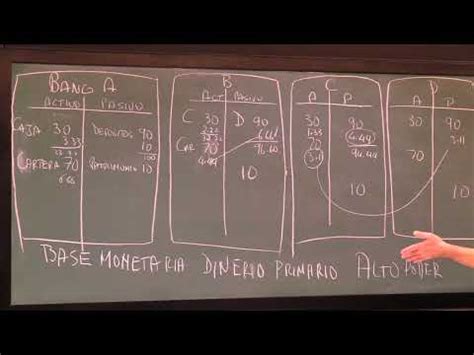 BANCO A
ACTIVO PASIVO
CAJA 30 DEPOSITOS 90
3.33 10
33.33 100
CARTERA 70 PATRIMONIO 10
6.66
B
ACT PASIVO
C 30 D 90
2.22 6.66
32.22 96.66
CAR 70
4.44
10
C
A P
30 90
1.33 4.44
70 94.44
3.11
10
D
A P
30 90
3.11
70
10
BASE MONETARIA DINERIO PRIMARIO ALTO PODER